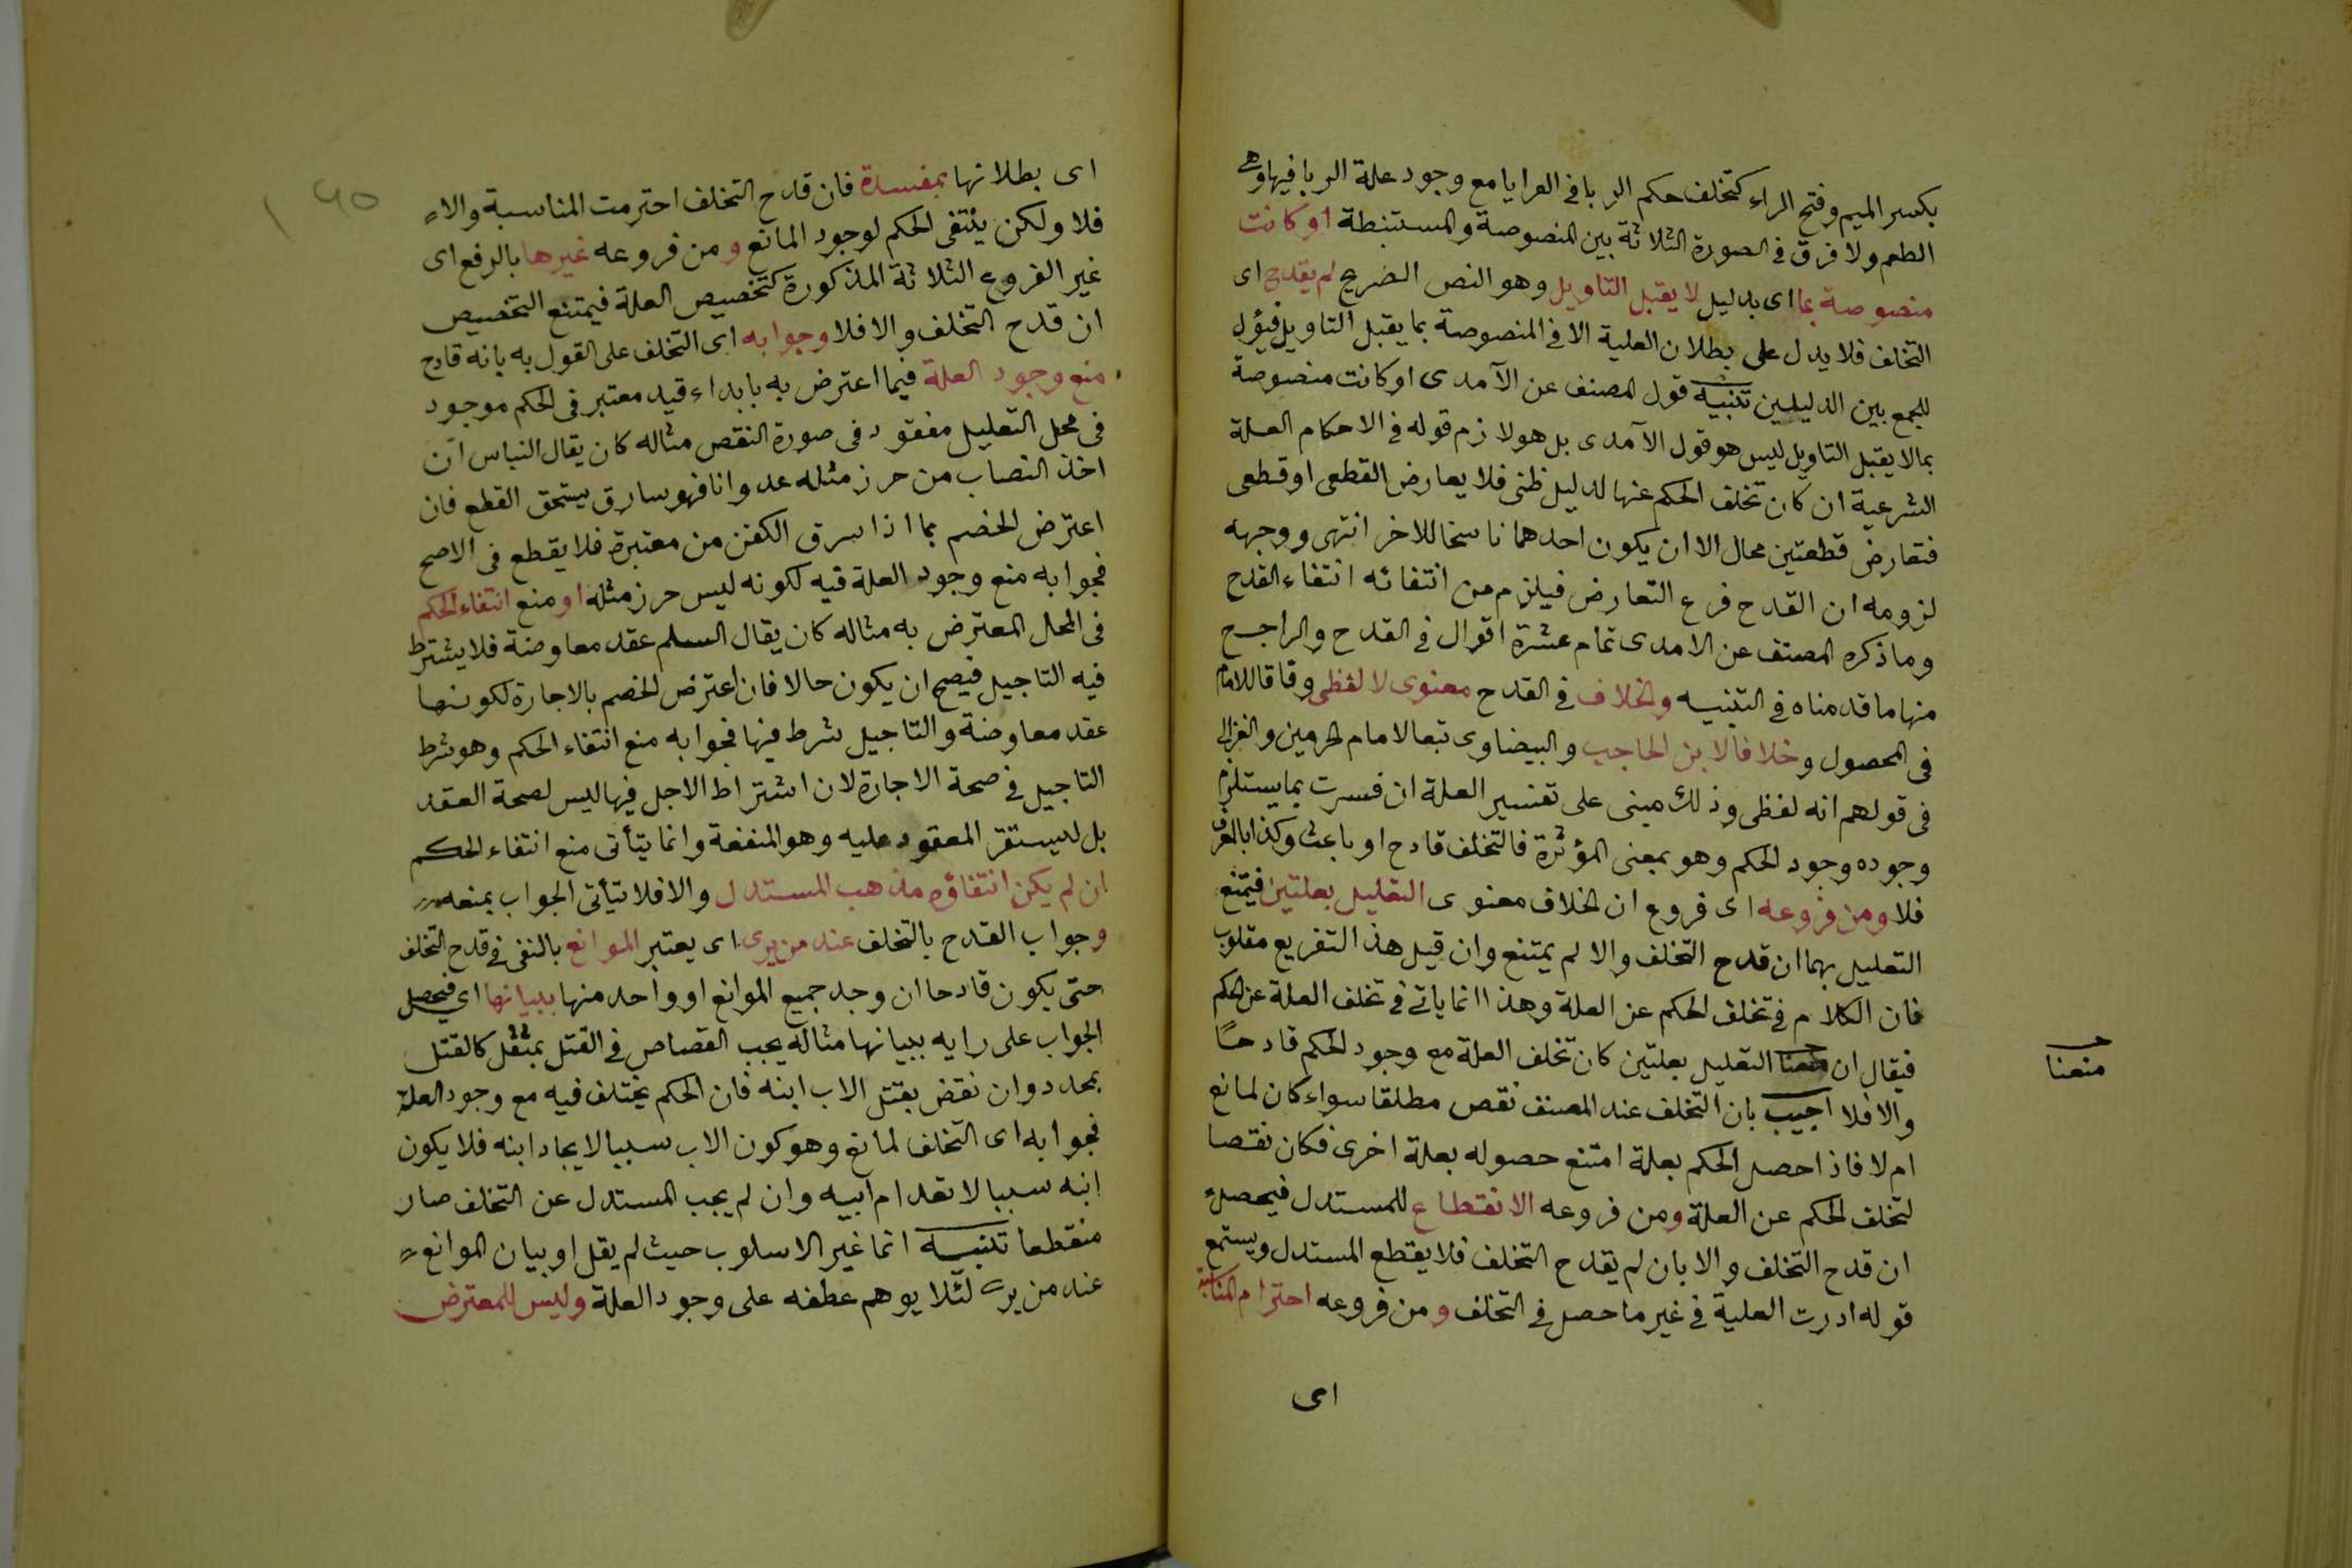 بكسر الميم وفتح الراء كتخلف حكم الربا فى العرايا مع وجود علة الربا فيها وهى
الطعم ولا فرق فى الصورة الثلاثة بين المنصوصة والمستنبطة او كانت
منصوصة بما اى بدليل لا يقبل التاويل وهو النص الضريح لم يقدح اى
التخلف فلا يدل على بطلان العلية الا فى المنصوصة بما يقبل التاويل فيؤل
للجمع بين الدليلين تنبيه قول المصنف عن الآمدى او كانت منصوصة
بما لا يقبل التاويل ليس هو قول الآمدى بل هو لازم قوله فى الاحكام العلة
الشرعية ان كان تخلف الحكم عنها لدليل ظنى فلا يعارض القطعى او قطعى
فتعارض قطعتين محال الا ان يكون احدهما ناسخا للاخر انتهى ووجهه
لزومه ان القدح فرع التعارض فيلزم من انتفائه انتفاء القدح
وما ذكره المصنف عن الامدى تمام عشرة اقوال فى القدح والراجح
منها ما قدمناه فى التنبيه والخلاف فى القدح معنوى لا لفظى وفاقا للامام
فى المحصول وخلافا لابن الحاجب والبيضاوى تبعا لامام الحرمين والغزالى
فى قولهم انه لفظى وذلك مبنى على تفسير العلة ان فسرت بما يستلزم
وجوده وجود الحكم وهو بمعنى المؤثرة فالتخلف قادح او باعث وكذا بالمعرف
فلا ومن فروعه اى فروع ان الخلاف معنوى التعليل بعلتين فيمتنع
التعليل بهما ان قدح التخلف والا لم يمتنع وان قيل هذا التفريع مقلوب
فان الكلام فى تخلف الحكم عن العلة وهذا انما ياتى فى تخلف العلة عن الحكم
فيقال ان منعنا التعليل بعلتين كان تخلف العلة مع وجود الحكم قادحًا
منعنا
والا فلا اجيب بان التخلف عند المصنف نقص مطلقا سواء كان لمانع
ام لا فاذا حصل الحكم بعلة امتنع حصوله بعلة اخرى فكان نقصا
لتخلف الحكم عن العلة ومن فروعه الانقطاع للمستدل فيحصل
ان قدح التخلف والا بان لم يقدح التخلف فلا يقطع المستدل ويستمع
قوله ادرت العلية فى غير ما حصل فى التخلف ومن فروعه احترام المناسبة
اى
اى بطلانها بمفسدة فان قدح التخلف احترمت المناسبة والا
فلا ولكن ينتفى الحكم لوجود المانع ومن فروعه غيرها بالرفع اى
غير الفروع الثلاثة المذكورة كتخصيص العلة فيمتنع التخصيص
ان قدح التخلف والا فلا وجوابه اى التخلف على القول به بانه قادح
منع وجود العلة فيما اعترض به بابداء قيد معتبر فى الحكم موجود
فى محل التعليل مفقود فى صورة النقص مثاله كان يقال النباس ان
اخذ النصاب من حرز مثله عدوانا فهو سارق يستحق القطع فان
اعترض الخصم بما اذا سرق الكفن من مقبرة فلا يقطع فى الاصح
فجوابه منع وجود العلة فيه لكونه ليس حرز مثله او منع انتفاء الحكم
فى المحل المعترض به مثاله كان يقال السلم عقد معاوضة فلا يشترط
فيه التاجيل فيصح ان يكون حالا فان اعترض الخصم بالاجارة لكونها
عقد معاوضة والتاجيل شرط فيها فجوابه منع انتفاء الحكم وهو شرط
التاجيل فى صحة الاجارة لان اشتراط الاجل فيها ليس لصحة العقد
بل لليستقر المعقود عليه وهو المنفعة وانما يتأتى منع انتفاء الحكم
ان لم يكن انتفاؤه مذهب المستدل والا فلا يتأتى الجواب بمنعه
وجواب القدح بالتخلف عند من يرى اى يعتبر الموانع بالنفى فى قدح التخلف
حتى يكون قادحا ان وجد جميع الموانع او واحد منها ببيانها اى فيحصل
الجواب على رايه ببيانها مثاله يجب القصاص فى القتل بمثقل كالقتل
بمحدد وان نقض بقتل الاب ابنه فان الحكم يختلف فيه مع وجود العلة
فجوابه اى التخلف لمانع وهو كون الاب سببا لايجاد ابنه فلا يكون
ابنه سببا لانعدام ابيه وان لم يجب المستدل عن التخلف صار
منقطعا تنبيه انما غير الاسلوب حيث لم يقل او بيان الموانع
عند من يرى لئلا يوهم عطفه على وجود العلة وليس للمعترض